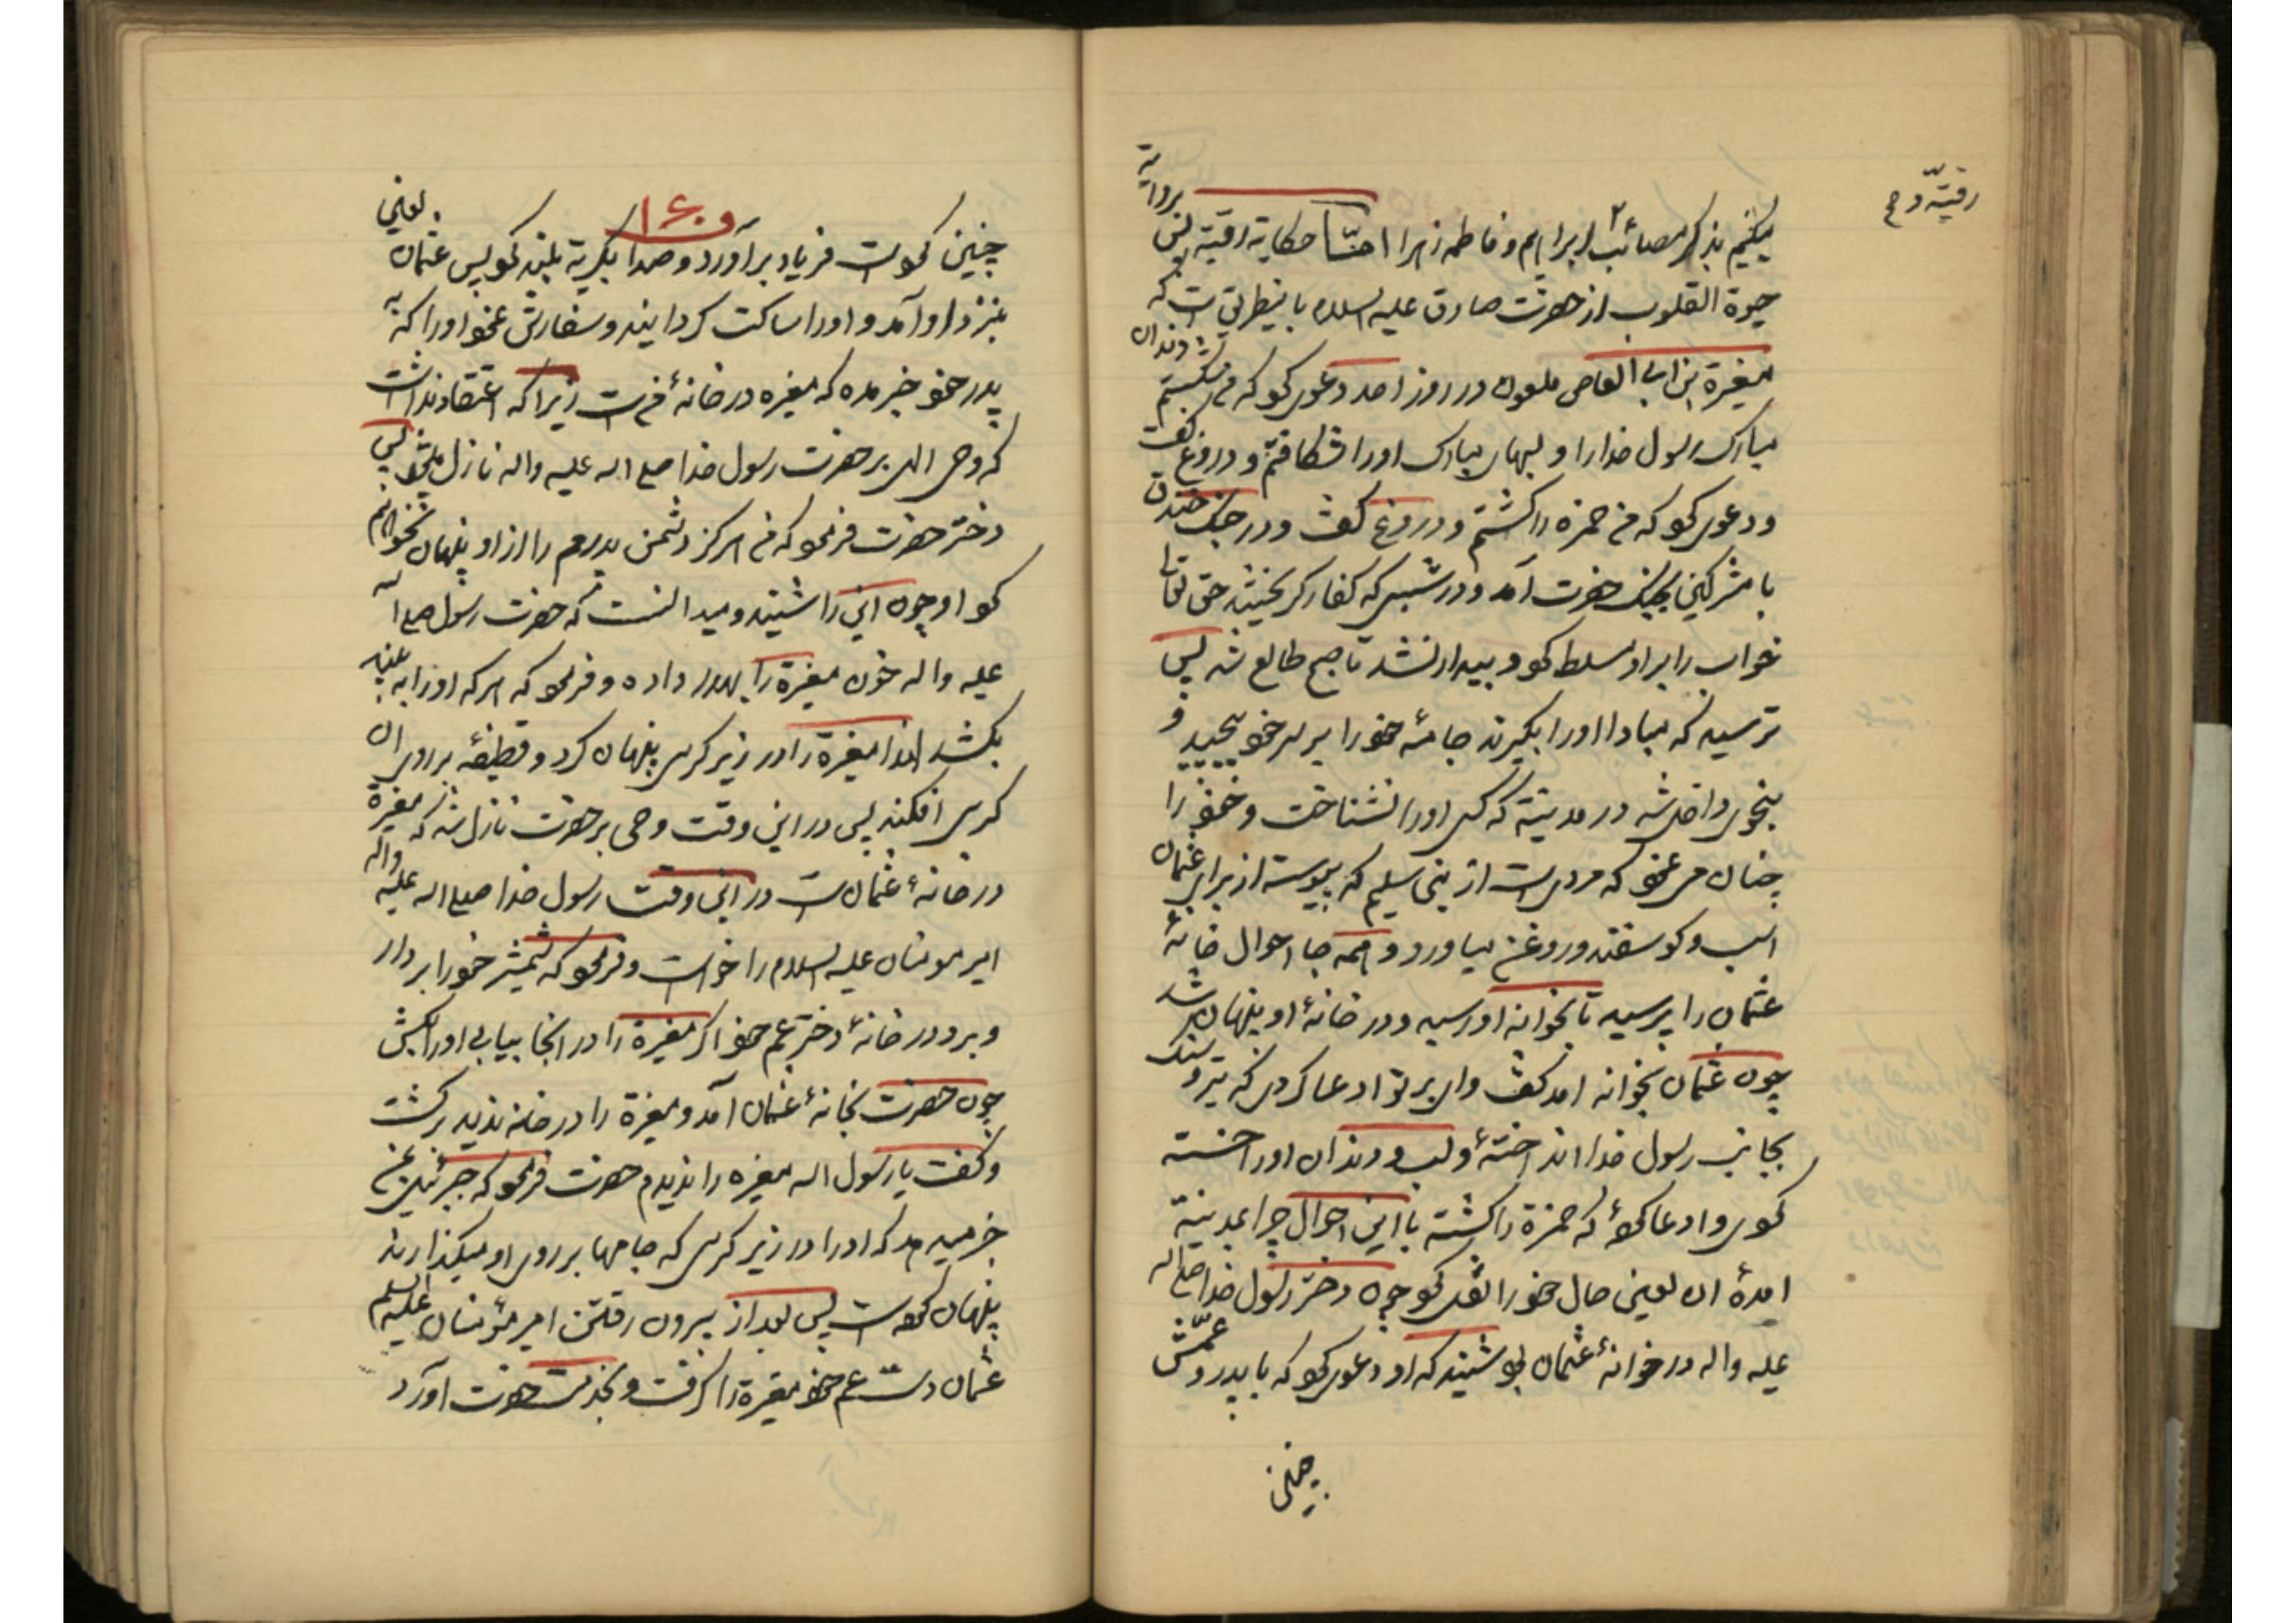 رقیّه و ح
میکنیم بذکر مصائب ابراهیم و فاطمه زهرا امّا حکایة رقیة پس بروایة
حیوة القلوب از حضرت صادق علیه السلام باینطریق است که
مغیرة بن ابی العاص ملعون در روز احد دعوی کرد که من شکستم دندان
مبارک رسول خدا را و لبهای مبارک او را شکافتم و دروغ گفت
و دعوی کرد که من حمزه را کشتم و دروغ گفت و در جنگ خندق
با مشرکین بجنگ حضرت آمد و در شبی که کفار گریختند حق تعالی
خواب را بر او مسلط کرد و بیدار نشد تا صبح طالع شد پس
ترسید که مبادا او را بگیرند جامهٔ خود را بر سر خود پیچید و
بنحوی داخل شد در مدینة که کسی او را نشناخت و خود را
چنان می نمود که مردی است از بنی سلیم که پیوسته از برای عثمان
اسب و کوسفند و روغن میاورد و همه جا احوال خانهٔ
عثمان را پرسید تا بخوانه او رسید و در خانهٔ او پنهان شد
چون عثمان بخوانه امد گفت وای بر تو ادعا کردی که تیر و سنک
بجانب رسول خدا انداختهٔ و لب و دندان او را خسته
کردی و ادعا کردهٔ که حمزة را کشتهٔ با این احوال چرا بمدینة
امدهٔ ان لعین حال خود را نقل کرد چون دختر رسول خدا صلی اله
علیه واله در خوانهٔ عثمان بود شنید که او دعوی کرد که با پدر و عمّش
چنین
۱۶۰
چنین کرده است فریاد برآورد و صدا بگریة بلند کرد پس عثمان لعین
بنزد او آمد و او را ساکت گردانید و سفارش نمود او را که
پدر خود خبر مده که مغیره در خانهٔ من است زیرا که اعتقاد نداشت
که وحی الهی بر حضرت رسول خدا صلی اله علیه واله نازل میشود پس
دختر حضرت فرمود که من هرگز دشمن پدرم را از او پنهان نخواهم
کرد او چون این را شنید و میدانست که حضرت رسول صلی اله
علیه واله خون مغیرة را بهدر داده و فرمود که هرکه او را به بیند
بکشد لهذا مغیرة را در زیر کرسی پنهان کرد و قطیفهٔ بر روی ان
کرسی افکند پس در این وقت وحی بر حضرت نازل شد که مغیرة
در خانهٔ عثمان است در این وقت رسول خدا صلی اله علیه واله
امیر مومنان علیه السلام را خواست و فرمود که شمشیر خود را بر دار
و برو در خانهٔ دختر عم خود اگر مغیرة را در انجا بیابی او را بکش
چون حضرت بخانهٔ عثمان آمد و مغیرة را در خانه ندید برگشت
و گفت یا رسول اله مغیره را ندیدم حضرت فرمود که جبرئیل بمن
خبر میدهد که او را در زیر کرسی که جامها بر روی او میکذارند
پنهان کرده است پس بعد از بیرون رفتن امیر مؤمنان علیه السلم
عثمان دست عم خود مغیرة را گرفت و بخدمت حضرت آورد